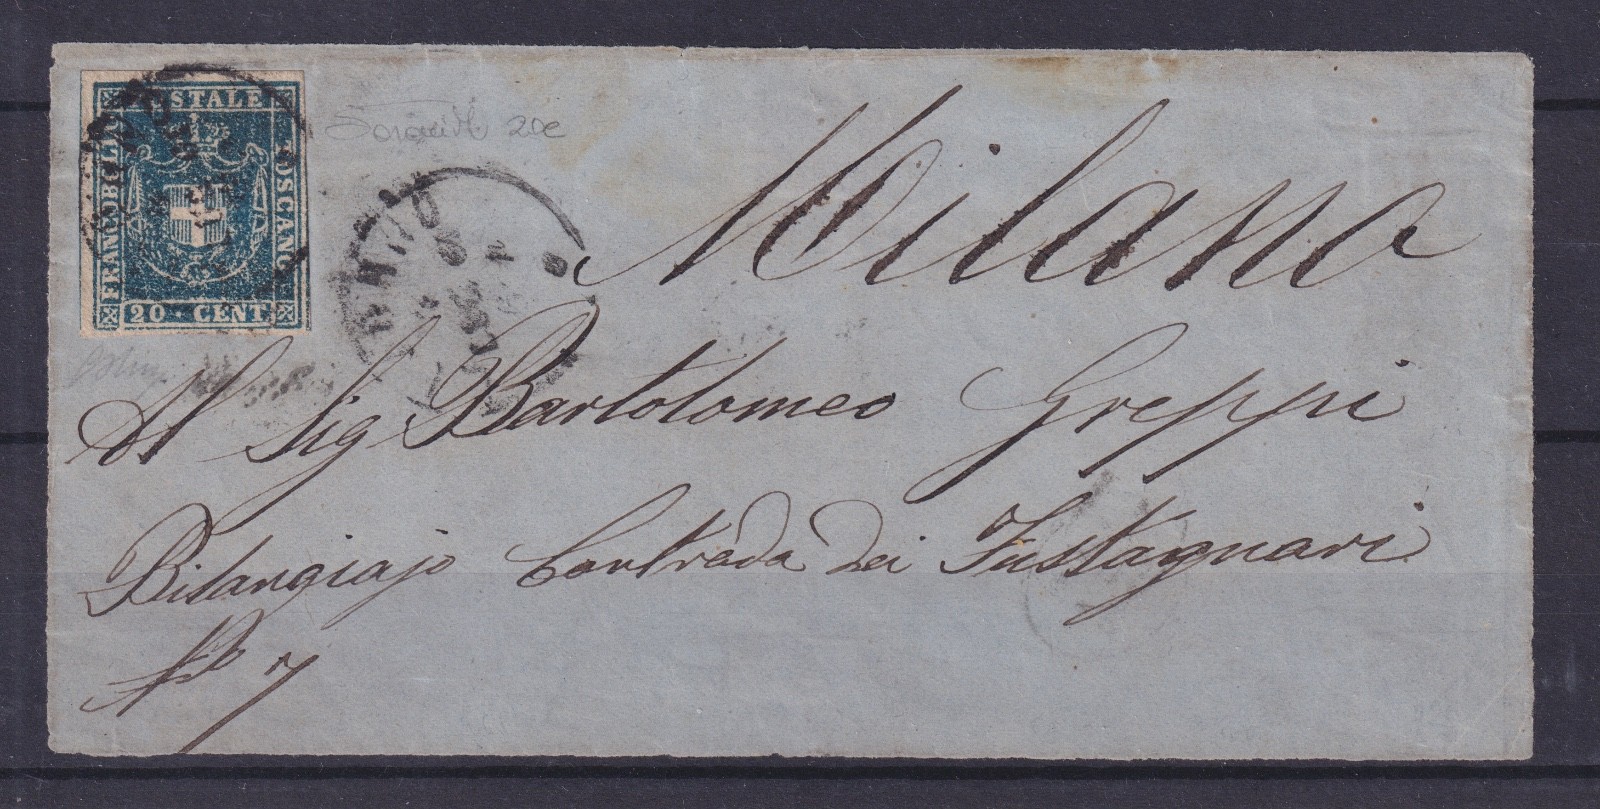 FRANCOBOLLO POSTALE TOSCANO
20 CENT
20c
Milano
Al Sig Bartolomeo Greppi
Bilangiajo Contrada dei Fustagnari
No 7